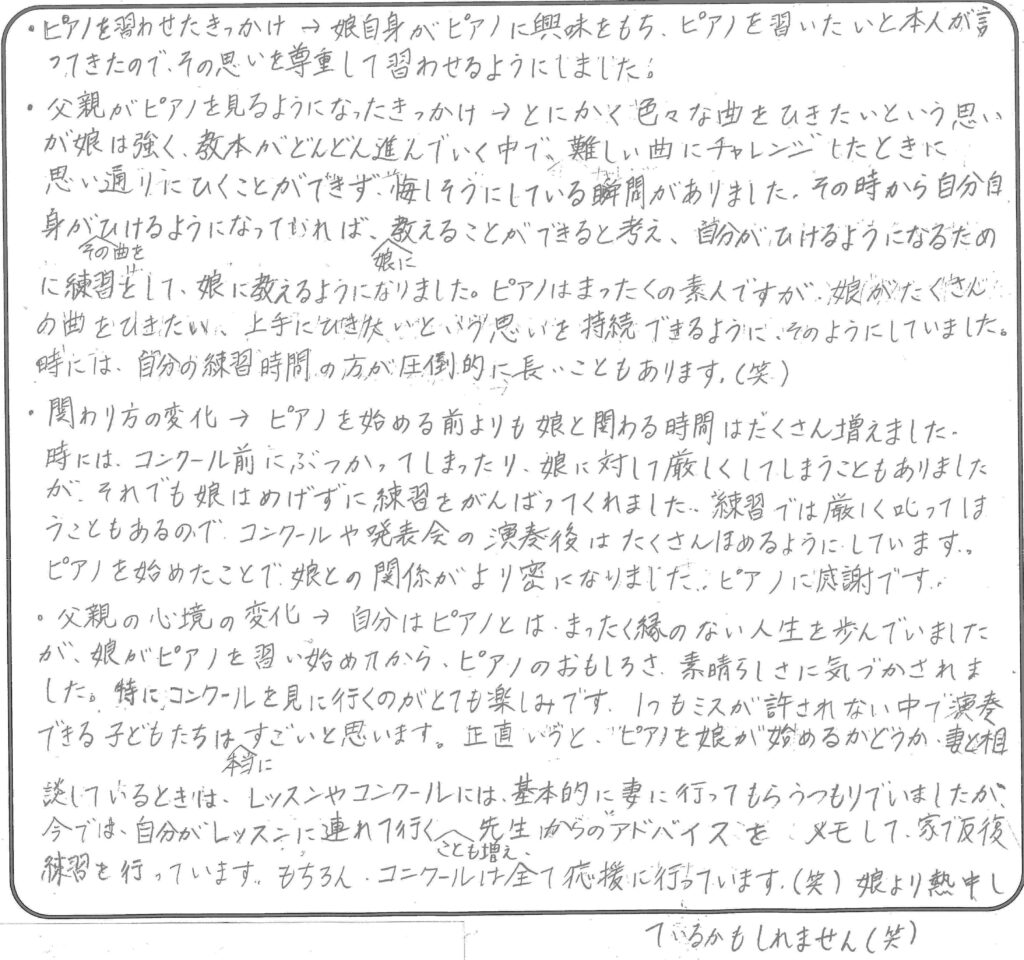 ・ピアノを習わせたきっかけ → 娘自身がピアノに興味をもち、ピアノを習いたいと本人が言
ってきたので、その思いを尊重して習わせるようにしました。
・父親がピアノを見るようになったきっかけ → とにかく色々な曲をひきたいという思い
が娘は強く、教本がどんどん進んでいく中で、難しい曲にチャレンジしたときに
思い通りにひくことができず、悔しそうにしている瞬間がありました。その時から自分自
身がひけるようになっていれば、教えることができると考え、自分がひけるようになるため
その曲を
娘に
に練習をして、娘に教えるようになりました。ピアノはまったくの素人ですが、娘がたくさん
の曲をひきたい、上手にひきたいという思いを持続できるように、そのようにしていました。
時には、自分の練習時間の方が圧倒的に長いこともあります。(笑)
・関わり方の変化 → ピアノを始める前よりも娘と関わる時間はたくさん増えました。
時には、コンクール前にぶつかってしまったり、娘に対して厳しくしてしまうこともありました
が、それでも娘はめげずに練習をがんばってくれました。練習では厳しく叱ってしま
うこともあるので、コンクールや発表会の演奏後はたくさんほめるようにしています。
ピアノを始めたことで、娘との関係がより密になりました。ピアノに感謝です。
・父親の心境の変化 → 自分はピアノとは、まったく縁のない人生を歩んでいました
が、娘がピアノを習い始めてから、ピアノのおもしろさ、素晴らしさに気づかされま
した。特にコンクールを見に行くのがとても楽しみです。1つもミスが許されない中で演奏
できる子どもたちはすごいと思います。正直いうと、ピアノを娘が始めるかどうか、妻と相
本当に
談しているときは、レッスンやコンクールには、基本的に妻に行ってもらうつもりでいましたが、
今では、自分がレッスンに連れて行く 先生からのアドバイスを メモして、家で反復
ことも増え、
練習を行っています。もちろん、コンクールは全て応援に行っています。(笑)娘より熱中し
ているかもしれません(笑)